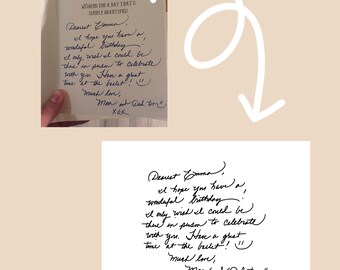 WISHING YOU A DAY THAT'S
SIMPLY BEAUTIFUL!
Dearest Emma,
I hope you have a
wonderful birthday.
I only wish I could be
there in person to celebrate
with you. Have a great
time at the ballet!
Much love,
Mom and Dad
xox
Dearest Emma,
I hope you have a
wonderful birthday.
I only wish I could be
there in person to celebrate
with you. Have a great
time at the ballet!
Much love,